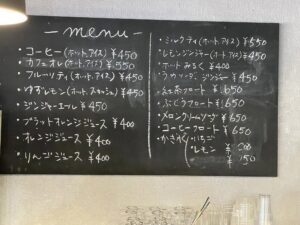 menu
・コーヒー(ホット,アイス) ¥450
・カフェオレ(ホット,アイス) ¥550
・フルーツティ(ホット,アイス) ¥450
・ゆずレモン(ホット,スカッシュ) ¥450
・ジンジャーエール ¥450
・ブラッドオレンジジュース ¥400
・オレンジジュース ¥400
・りんごジュース ¥400
・ミルクティ(ホット,アイス) ¥550
・レモンジンジャー(ホット,アイス) ¥450
・ホットみるく ¥400
ジンジャー ¥450
・紅茶フロート ¥650
・ぶどうフロート ¥650
・メロンクリームソーダ ¥650
・コーヒーフロート ¥650
・かき氷 いちご
レモン ¥200
¥150